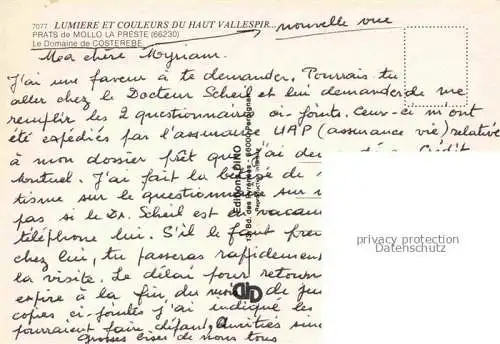 7077 LUMIERE ET COULEURS DU HAUT VALLESPIR... nouvelle vue
PRATS de MOLLO LA PRESTE (66230)
Le Domaine de COSTEREBE
Ma chère Myriam.
J'ai une faveur à te demander. Pourrais tu
aller chez le Docteur Scheil et lui demander de me
remplir les 2 questionnaires ci-joints. Ceux-ci m'ont
été expédiés par l'assurance UAP (assurance vie) relative
à mon dossier prêt que j'ai Crédit
Mutuel. J'ai fait la bêtise de
tisme sur le questionnaire sur
pas si le Dr. Scheil est en vacan
téléphone lui. S'il le faut pren
chez lui, tu passeras rapidemen
la visite. Le délai pour retourn
expire à la fin du mois de ju
copies ci-jointes j'ai indiqué les
pourraient faire défaut, Amitiés sin
Grosses bises de nous tous
Editions DINO
13 Bd. des Pyrénées - 66000 Perpignan
Reproduction interdite
privacy protection
Datenschutz